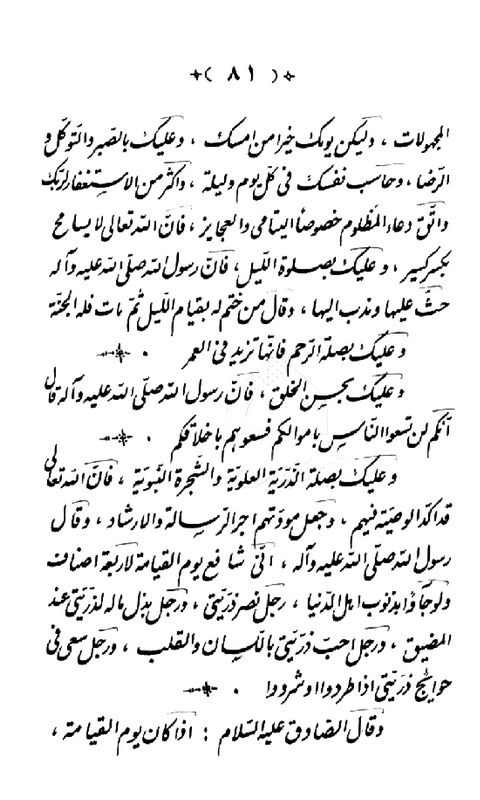 ﴿ ٨١ ﴾
المجهولات ، وليكن يومك خيرا من امسك ، وعليك بالصّبر والتّوكّل و
الرّضا ، وحاسب نفسك في كلّ يوم وليلة ، واكثر من الاستغفار لربّك
واتّق دعاء المظلوم خصوصاً اليتامى والعجايز ، فانّ اللّه تعالى لا يسامح
بكسر كسير ، وعليك بصلوة اللّيل ، فانّ رسول اللّه صلّى اللّه عليه وآله
حثّ عليها وندب اليها ، وقال من ختم له بقيام اللّيل ثمّ مات فله الجنّة
وعليك بصلة الرّحم فانّها تزيد في العمر .
وعليك بحسن الخلق ، فانّ رسول اللّه صلّى اللّه عليه وآله قال
انّكم لن تسعوا النّاس باموالكم فسعوهم باخلاقكم .
وعليك بصلة الذّريّة العلويّة والشّجرة النّبويّة ، فانّ اللّه تعالى
قد اكّد الوصيّة فيهم ، وجعل مودّتهم اجر الرّسالة والارشاد ، وقال
رسول اللّه صلّى اللّه عليه وآله ، انّي شافع يوم القيامة لاربعة اصناف
ولو جاؤا بذنوب اهل الدّنيا ، رجل نصر ذرّيّتي ، ورجل بذل ماله لذرّيّتي عند
المضيق ، ورجل احبّ ذرّيّتي باللّسان والقلب ، ورجل سعى في
حوايج ذرّيّتي اذا طردوا او شردوا .
وقال الصّادق عليه السّلام : اذا كان يوم القيامة ،